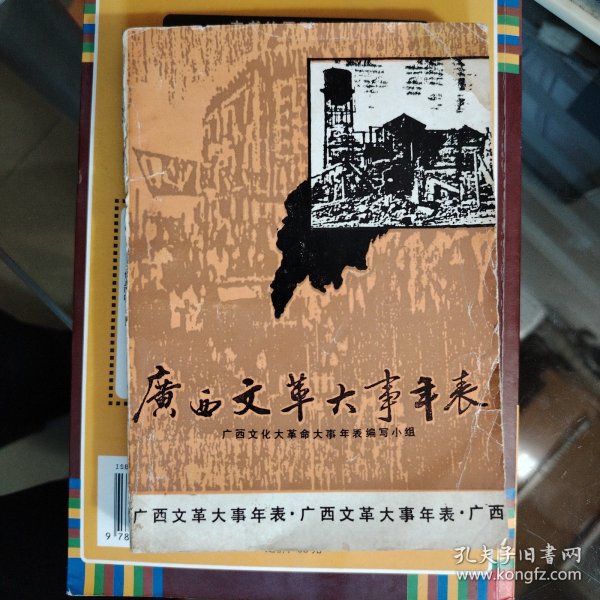 廣西文革大事年表
广西文化大革命大事年表编写小组
广西文革大事年表·广西文革大事年表·广西
ISB
9 78
孔夫子旧书网
www.kongfz.com